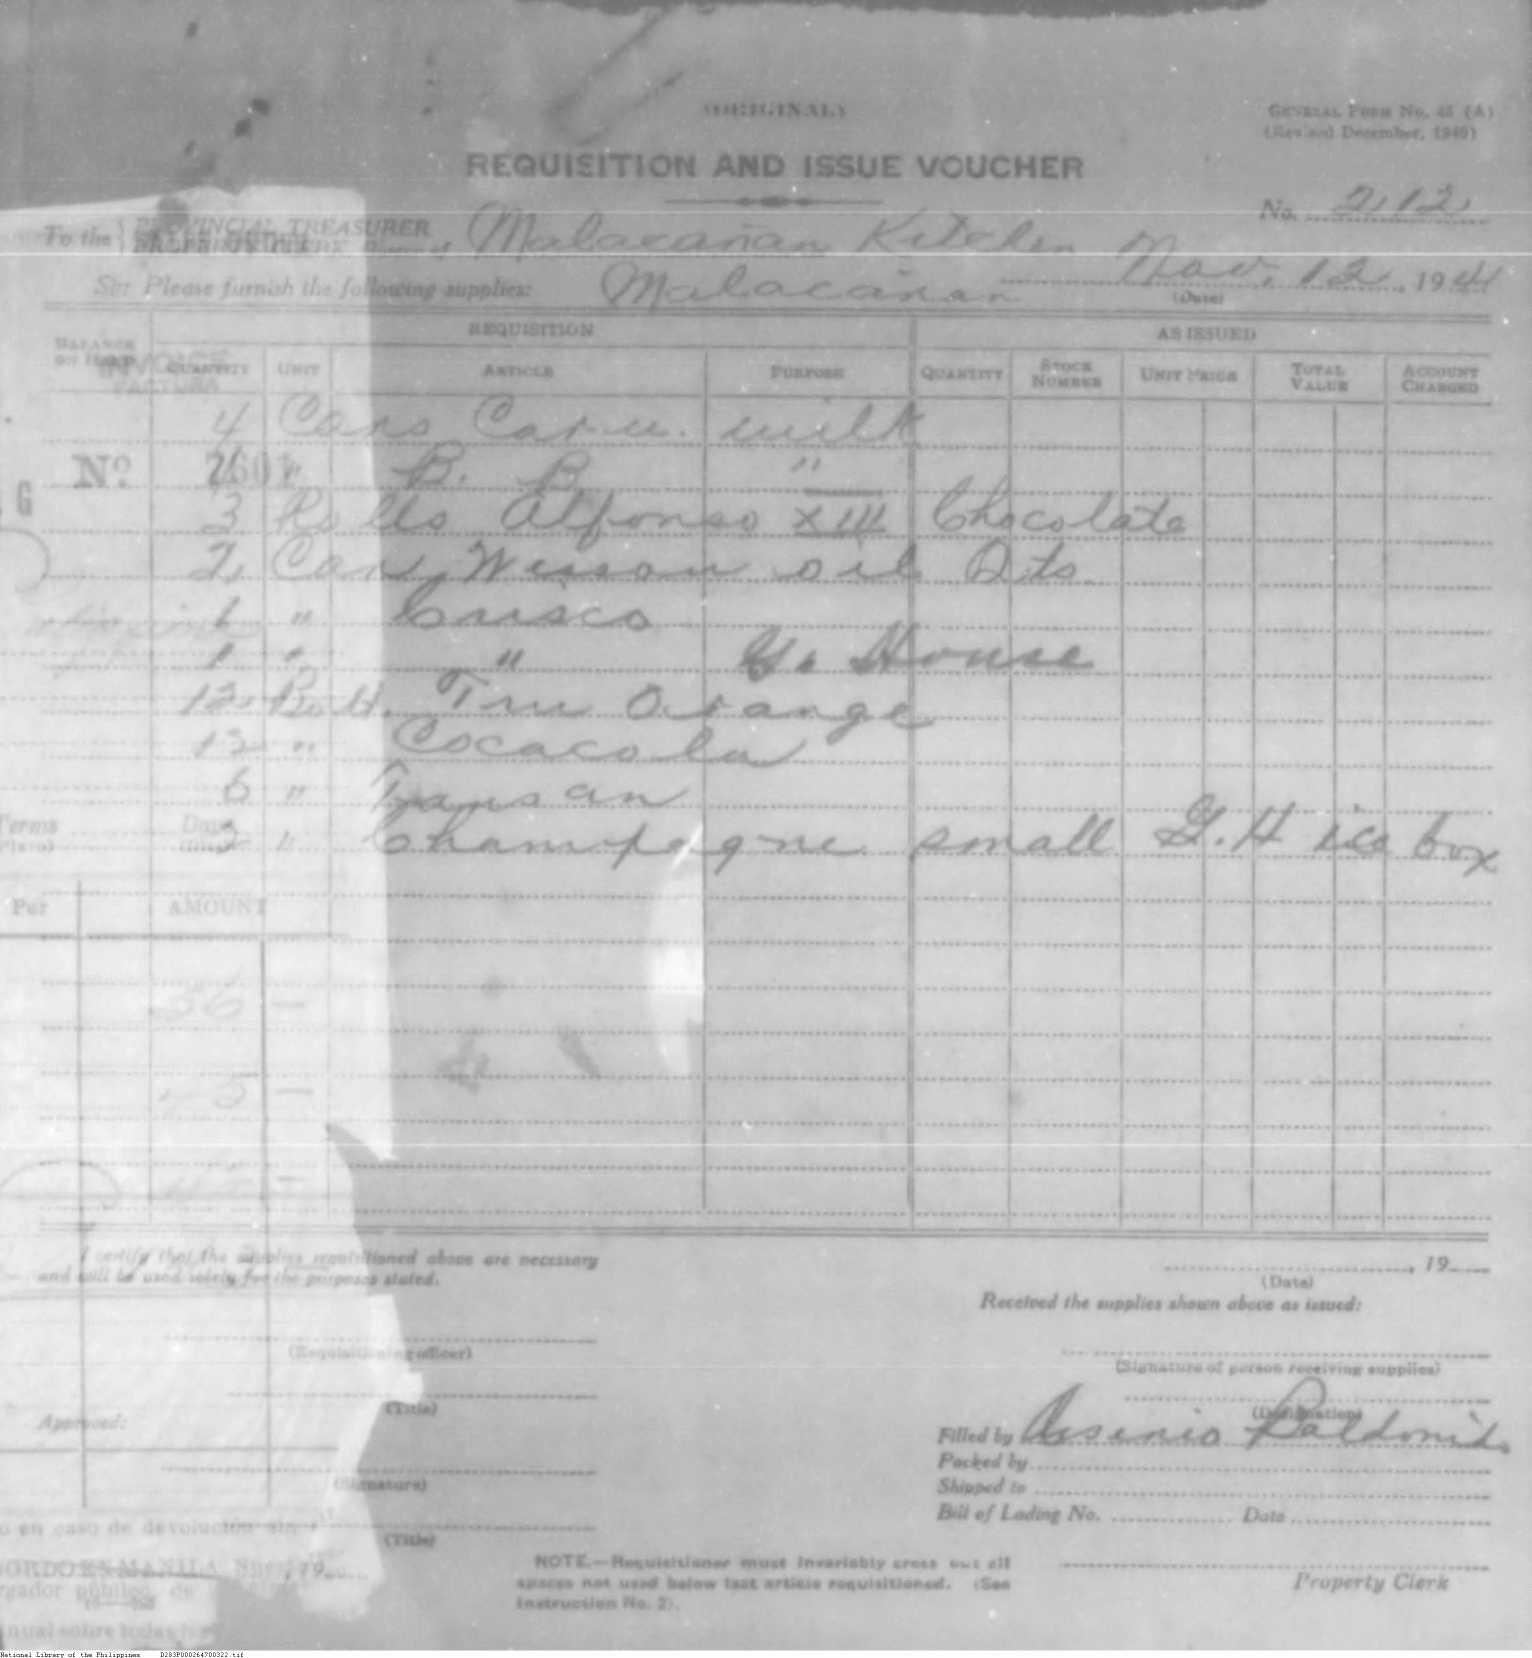 (ORIGINAL)
GENERAL FORM No. 45 (A)
(Revised December, 1940)
REQUISITION AND ISSUE VOUCHER
No. 212
To the PROVINCIAL TREASURER
Malacañan Kitchen Nov. 12, 1941
Sir: Please furnish the following supplies: Malacañan
(Date)
REQUISITION AS ISSUED
BALANCE ON HAND QUANTITY UNIT ARTICLE PURPOSE QUANTITY STOCK NUMBER UNIT PRICE TOTAL VALUE ACCOUNT CHARGED
INVOICE
FACTURA
4 Cans Carn. milk
" B. B. "
No
G
3 Rolls Alfonso XIII Chocolate
2 Can Wesson oil Qts.
1 " Crisco
1 " " G. House
12 Bott. Tru Orange
12 " Cocacola
6 " Tansan
2 " Champagne small G. H ice box
Terms
Per AMOUNT
36 —
I certify that the supplies requisitioned above are necessary
and will be used solely for the purposes stated.
, 19
(Date)
Received the supplies shown above as issued:
(Requisitioning officer)
(Signature of person receiving supplies)
(Title)
(Designation)
Approved:
Filled by Arsenio Baldonido
Packed by
Shipped to
(Signature)
Bill of Lading No. Date
en caso de devolución sin
(Title)
NOTE.—Requisitioner must invariably cross out all
spaces not used below last article requisitioned. (See
Instruction No. 2).
Property Clerk
MANILA
público, de
anual sobre todas
National Library of the Philippines D283P000264700322.tif